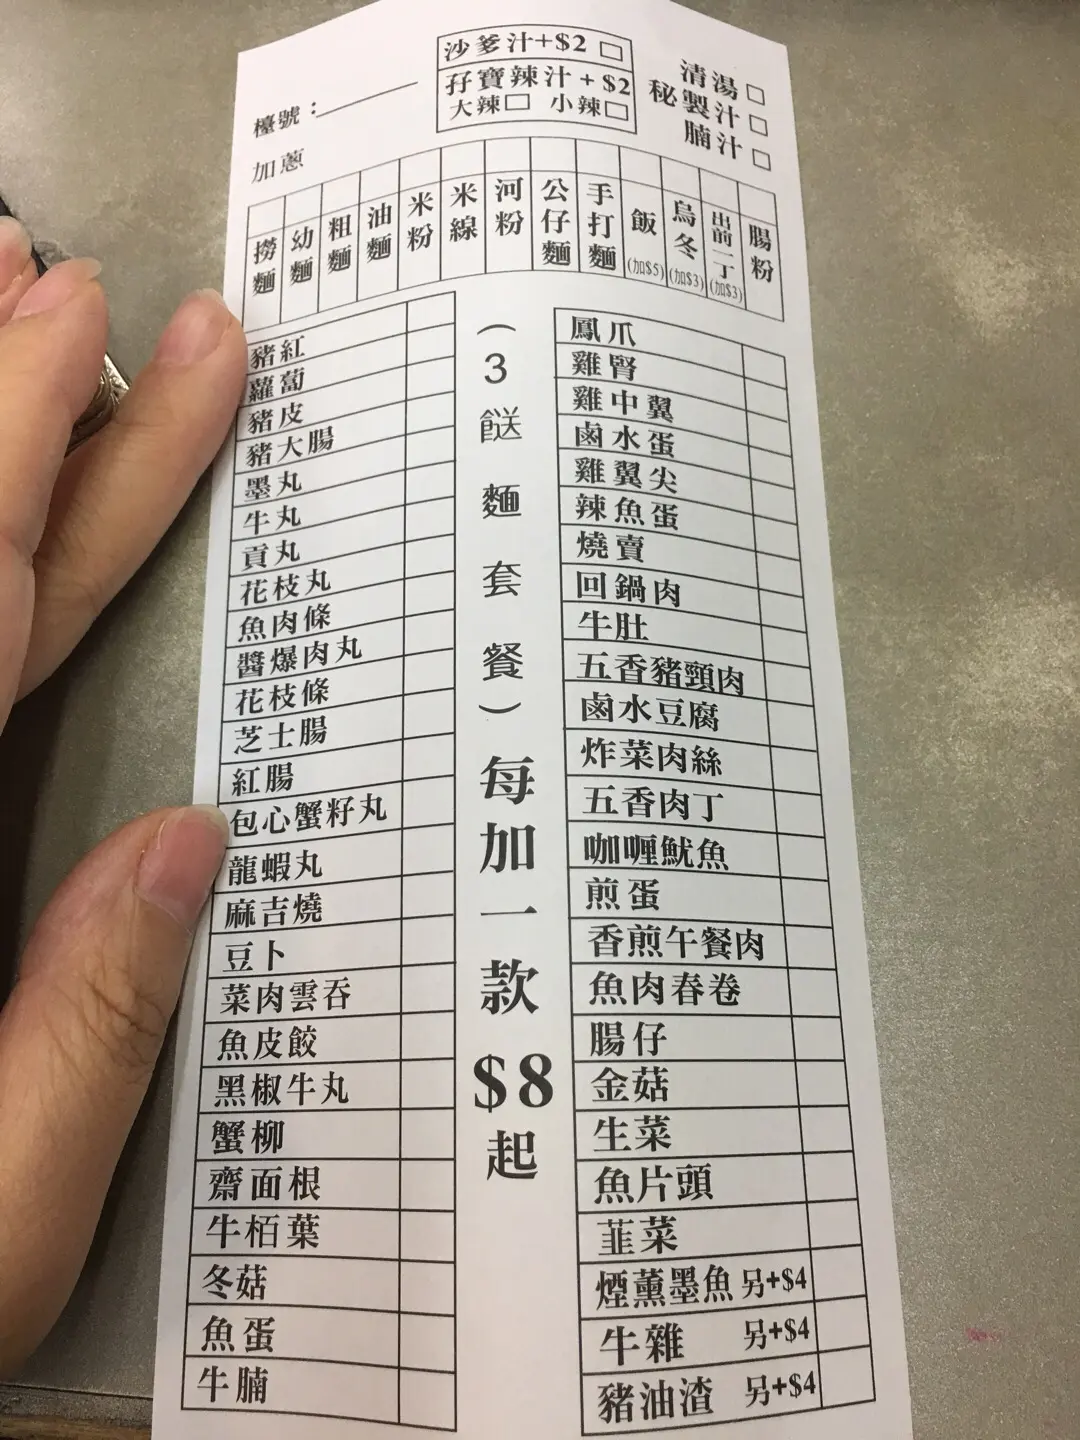 沙爹汁+$2
孖寶辣汁+$2
大辣 小辣
清湯
秘製汁
腩汁
檯號：
加蔥
撈麵
幼麵
粗麵
油麵
米粉
米線
河粉
公仔麵
手打麵
飯(加$5)
烏冬(加$3)
出前一丁(加$3)
腸粉
豬紅
蘿蔔
豬皮
豬大腸
墨丸
牛丸
貢丸
花枝丸
魚肉條
醬爆肉丸
花枝條
芝士腸
紅腸
包心蟹籽丸
龍蝦丸
麻吉燒
豆卜
菜肉雲吞
魚皮餃
黑椒牛丸
蟹柳
齋面根
牛栢葉
冬菇
魚蛋
牛腩
（3餸麵套餐）每加一款$8起
鳳爪
雞腎
雞中翼
鹵水蛋
雞翼尖
辣魚蛋
燒賣
回鍋肉
牛肚
五香豬頸肉
鹵水豆腐
炸菜肉絲
五香肉丁
咖喱魷魚
煎蛋
香煎午餐肉
魚肉春卷
腸仔
金菇
生菜
魚片頭
韮菜
煙薰墨魚 另+$4
牛雜 另+$4
豬油渣 另+$4